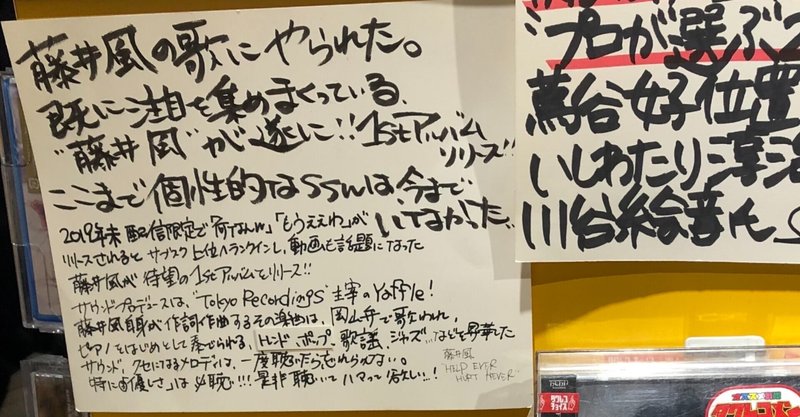 藤井風の歌にやられた。
既に注目を集めまくっている、
"藤井風"が遂に!! 1stアルバム
リリース!!
ここまで個性的なSSWは今まで
いてなかった…
2019年末 配信限定で「何なんw」「もうええわ」が
リリースされるとサブスク上位へランクインし、動画も話題になった
藤井風が待望の1stアルバムをリリース!!
サウンドプロデュースは、"Tokyo Recordings"主宰のYaffle!
藤井風自身が作詞作曲するその楽曲は、岡山弁で歌われ、
ピアノをはじめとして奏でられる、トレンド、ポップ、歌謡、ジャズ…などを昇華した
サウンド、クセになるメロディは、一度聴いたら忘れられない。
特に「優しさ」は必聴!!! 是非聴いてハマって欲しい…!
藤井風
HELP EVER
HURT NEVER
プロが選ぶ
蔦谷 女子位置
いしわたり淳治
川谷絵音氏
タワレコ
チョイス
オススメ
タワレコ